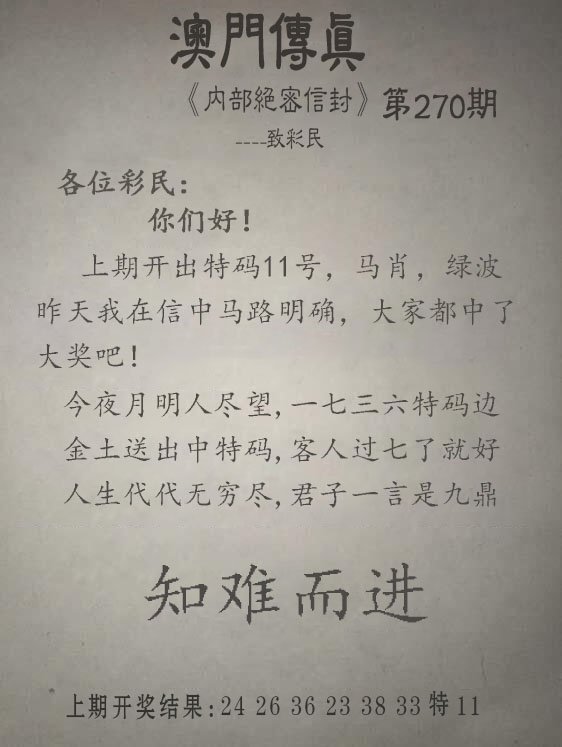 澳門傳眞
《内部絕密信封》第270期
----致彩民
各位彩民：
你们好！
上期开出特码11号，马肖，绿波
昨天我在信中马路明确，大家都中了
大奖吧！
今夜月明人尽望,一七三六特码边
金土送出中特码,客人过七了就好
人生代代无穷尽,君子一言是九鼎
知难而进
上期开奖结果:24 26 36 23 38 33 特 11